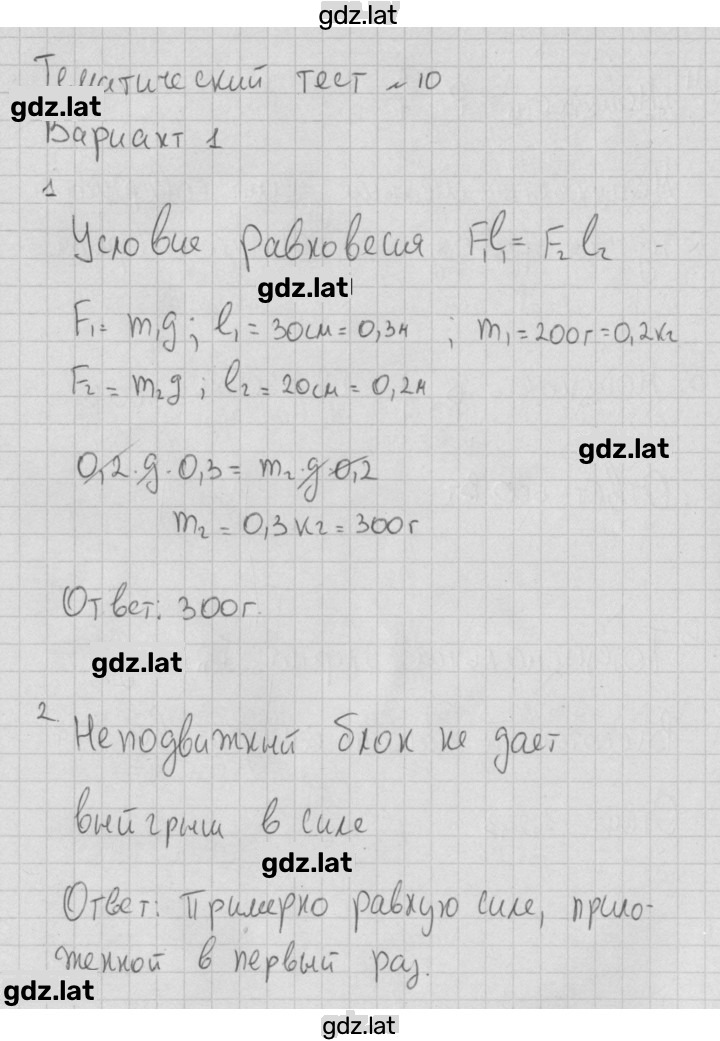 gdz.lat
Тематический тест №10
gdz.lat
Вариант 1
1
Условие равновесия F₁l₁ = F₂ l₂
gdz.lat
F₁ = m₁g ; l₁ = 30см = 0,3м ; m₁ = 200г = 0,2кг
F₂ = m₂g ; l₂ = 20см = 0,2м
gdz.lat
0,2·g·0,3 = m₂·g·0,2
m₂ = 0,3кг = 300г
Ответ: 300г.
gdz.lat
2.
Неподвижный блок не дает
выйгрыш в силе
gdz.lat
Ответ: Примерно равную силе, прило-
женной в первый раз.
gdz.lat
gdz.lat